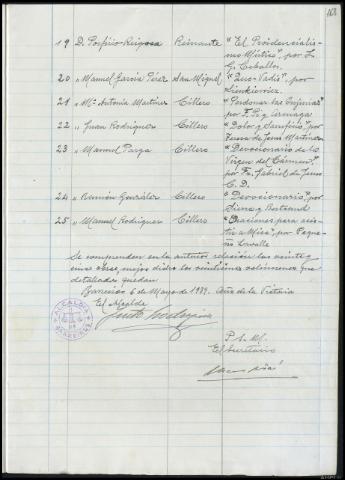 19 D. Porfirio Reigosa Reinante "El Providencialis-
mo Místico", por J.
G. Ceballos.
20 " Manuel García Pérez San Miguel "Quo-Vadis", por
Sienkievicz.
21 " Mª Antonia Martínez Cillero "Perdonar las Injurias"
por F. P. y
22 " Juan Rodríguez Cillero "Dolor y Sacrificio", por
Martínez
23 " Manuel Parga Cillero "Devocionario de la
Virgen del Cármen",
por Fr. Gabriel de Jesús
C. D.
24 " Ramón González Cillero "Devocionario", por
y Bertrand
25 " Manuel Rodríguez Cillero "Oraciones para asis-
tir a Misa", por
Lavalle
Se comprenden en la anterior relación los veinti-
cinco volúmenes que
detallados quedan.
Barreiros 6 de Mayo de 1939. Año de la Victoria
El Alcalde
P. S. M.
El Secretario
ALCALDIA DE BARREIROS